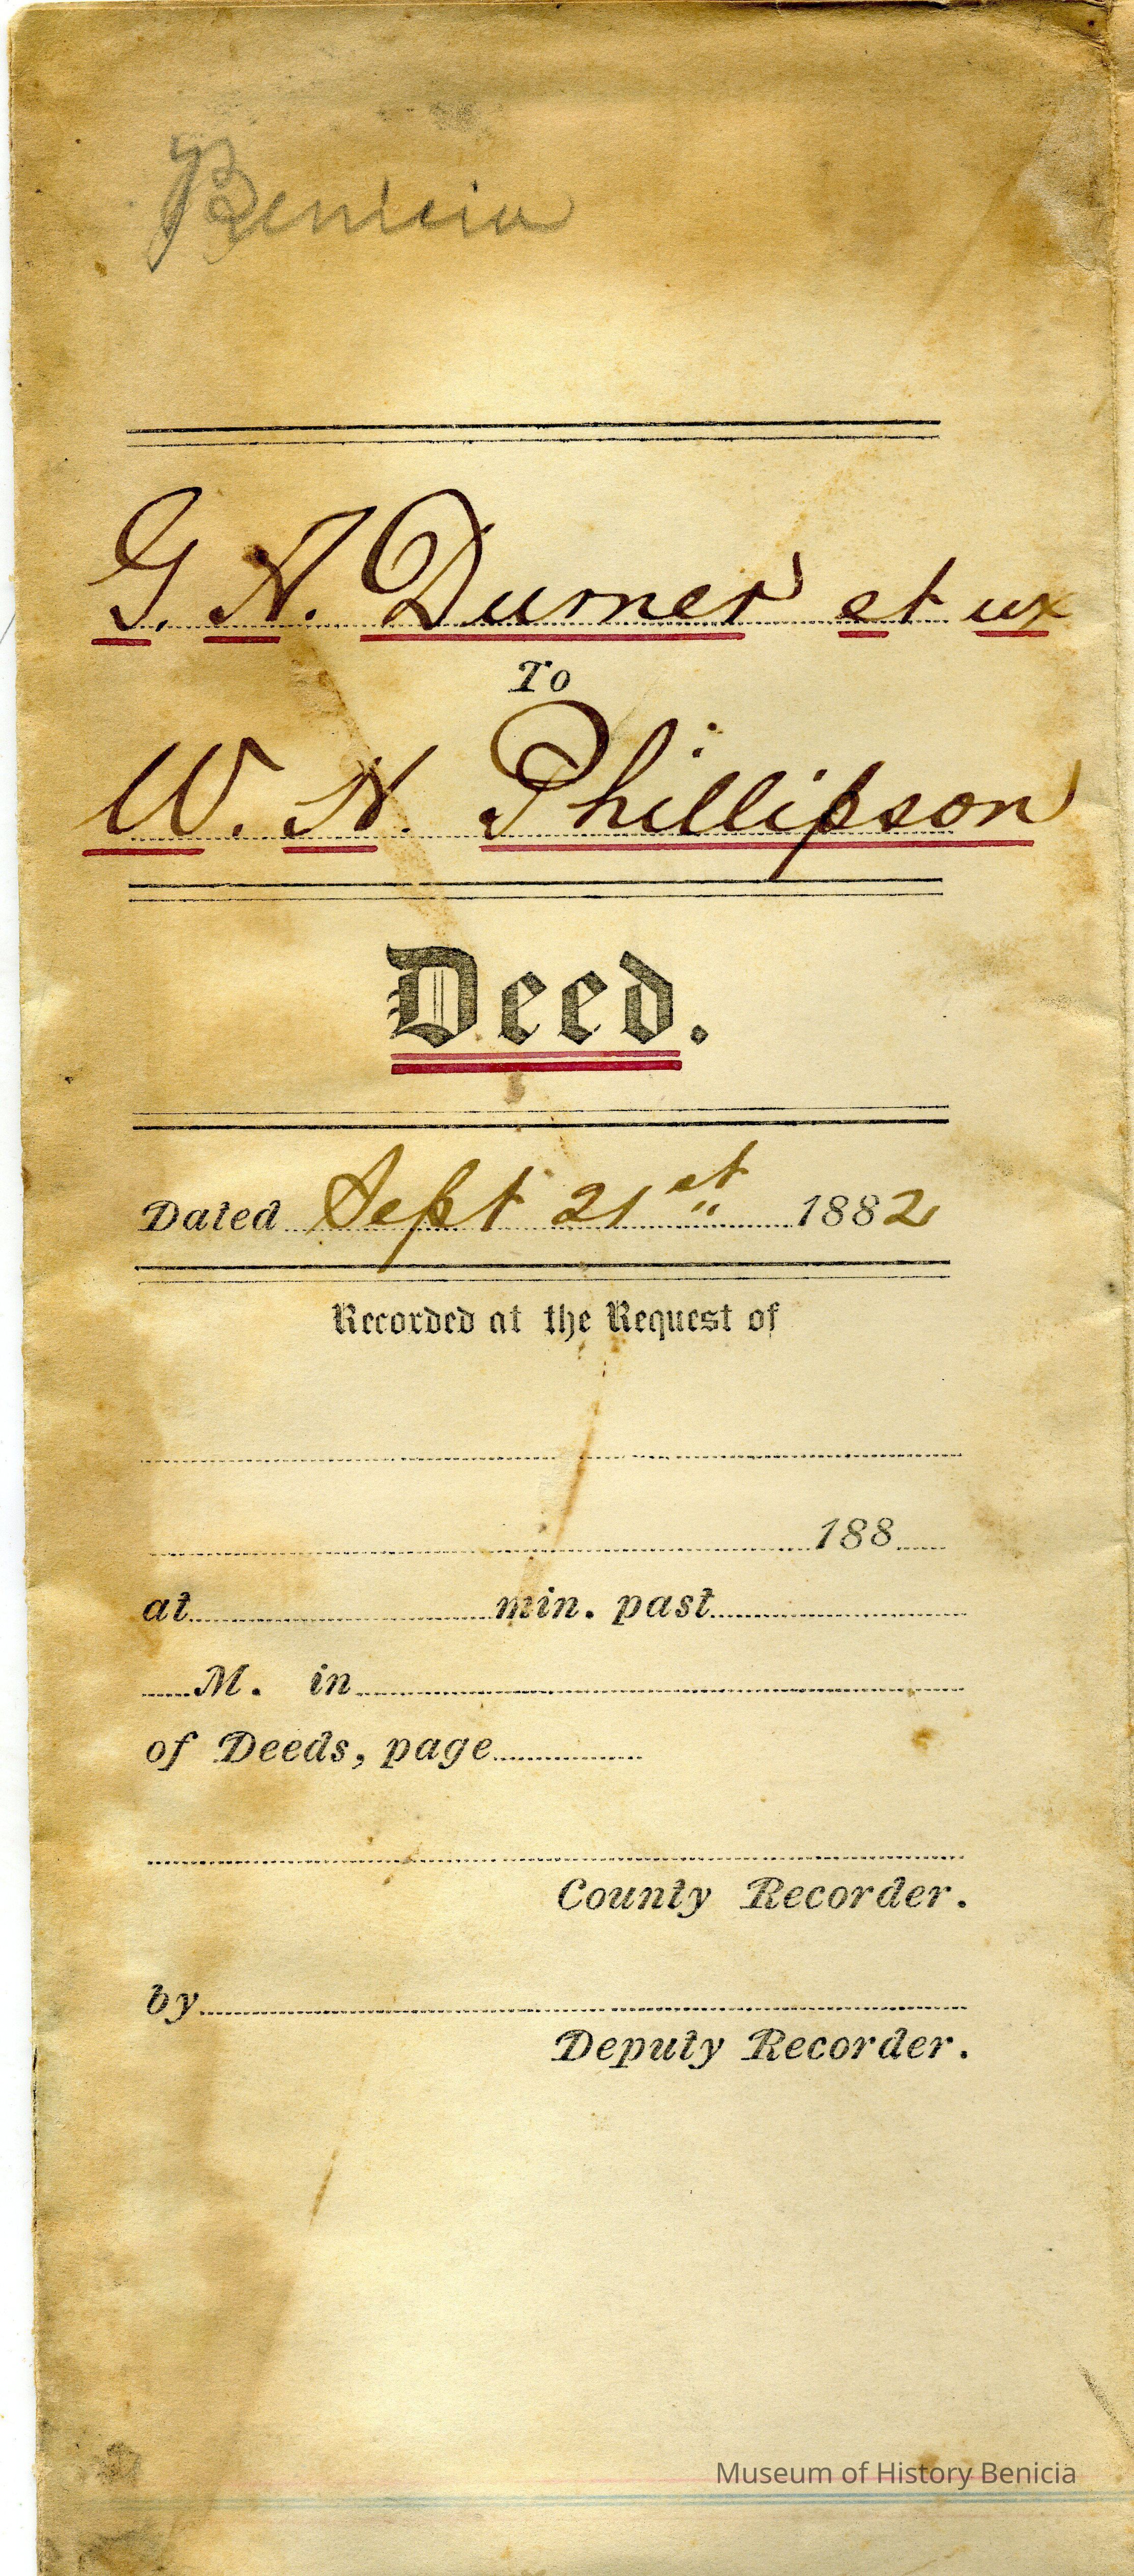 Benicia
G. N. Durner et ux
To
W. N. Phillipson
Deed.
Dated Sept 21st 1882
Recorded at the Request of
188
at min. past
M. in
of Deeds, page
County Recorder.
by
Deputy Recorder.
Museum of History Benicia